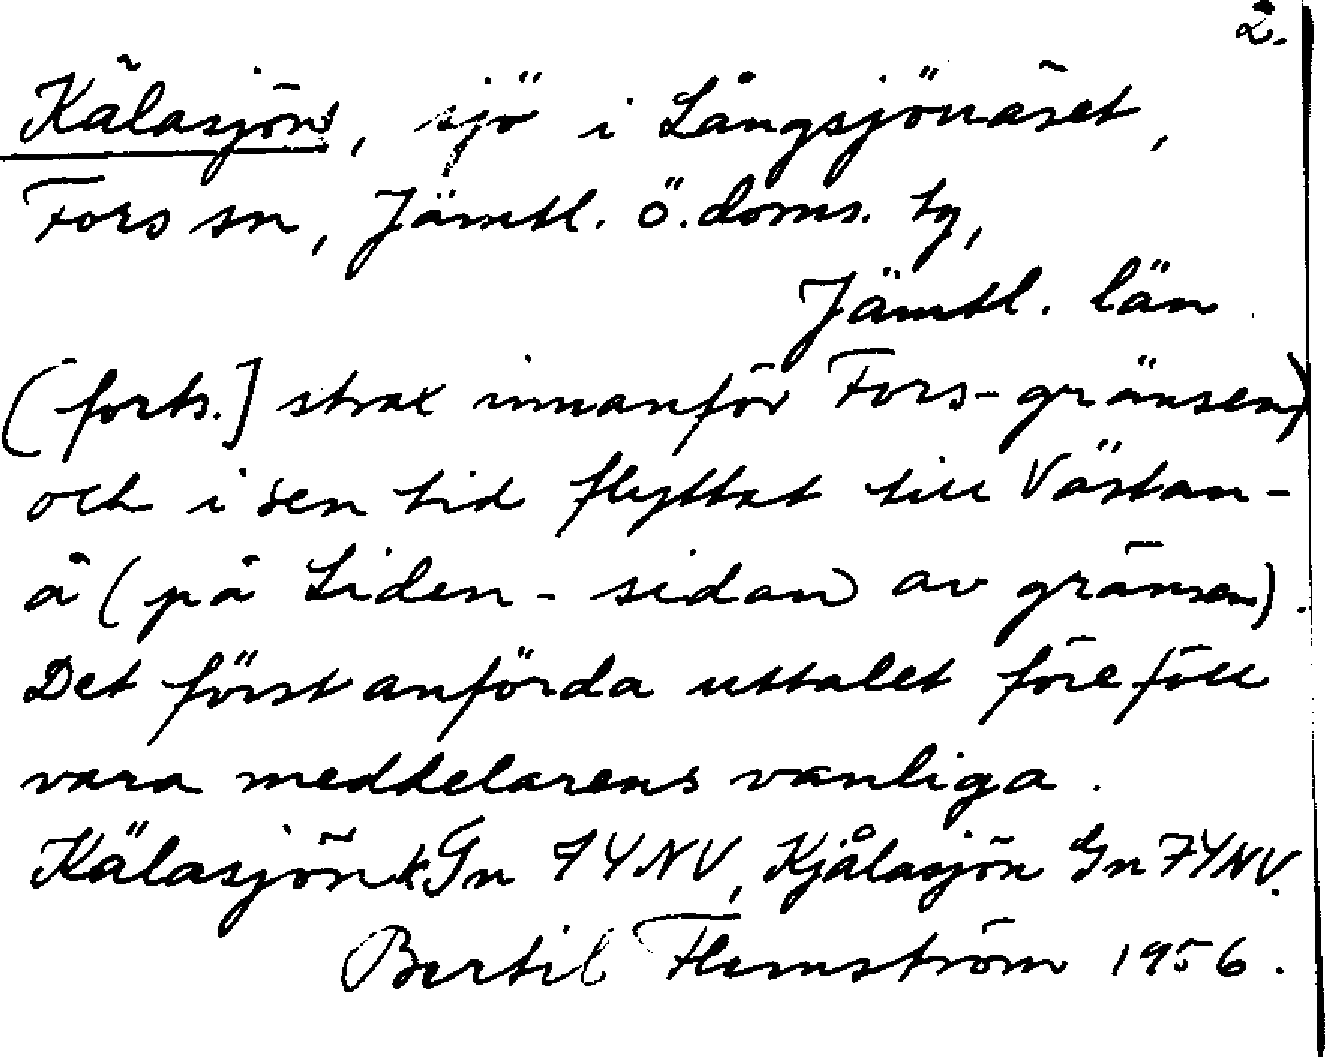 2.
Kälasjön, sjö i Långsjönäset,
Fors sn, Jämtl. ö. doms. tg,
Jämtl. län.
(forts.] strax innanför Fors-gränsen)
och i sen tid flyttat till Västan-
å (på Liden-sidan av gränsen).
Det först anförda uttalet föreföll
vara meddelarens vanliga.
Kälasjön Gn 74NV, Kjålasjön Gn 74NV.
Bertil Flemström 1956.